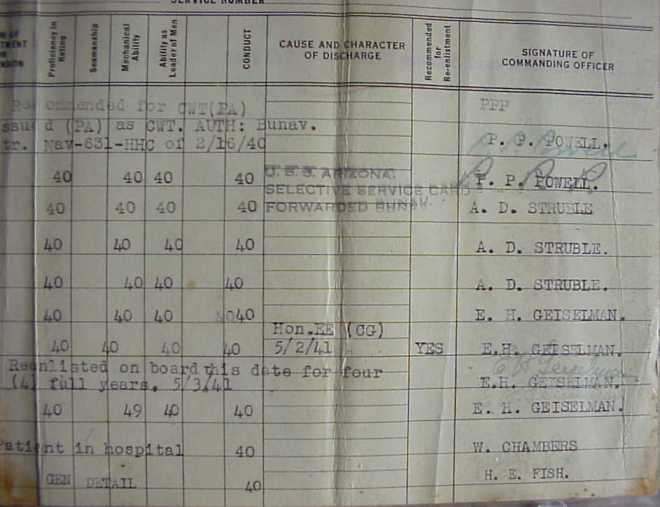 SERVICE NUMBER
Proficiency in Rating Seamanship Mechanical Ability Ability as Leader of Men CONDUCT CAUSE AND CHARACTER OF DISCHARGE Recommended for Re-enlistment SIGNATURE OF COMMANDING OFFICER
Recommended for CWT(PA) PPP
ssued (PA) as CWT. AUTH: Bunav.
tr. Nav-631-HHC of 2/16/40 P. P. POWELL.
40 40 40 40 U.S.S. ARIZONA: P. P. POWELL.
SELECTIVE SERVICE CARD
40 40 40 40 FORWARDED BUNAV. A. D. STRUBLE
40 40 40 40 A. D. STRUBLE.
40 40 40 40 A. D. STRUBLE.
40 40 40 4040 E. H. GEISELMAN.
Hon.EE (CG)
40 40 40 40 5/2/41 YES E.H. GEISELMAN.
Reenlisted on board this date for four
(4) full years. 5/3/41 E.H. GEISELMAN.
40 49 40 40 E. H. GEISELMAN.
atient in hospital 40 W. CHAMBERS
GEN DETAIL 40 H. E. FISH.